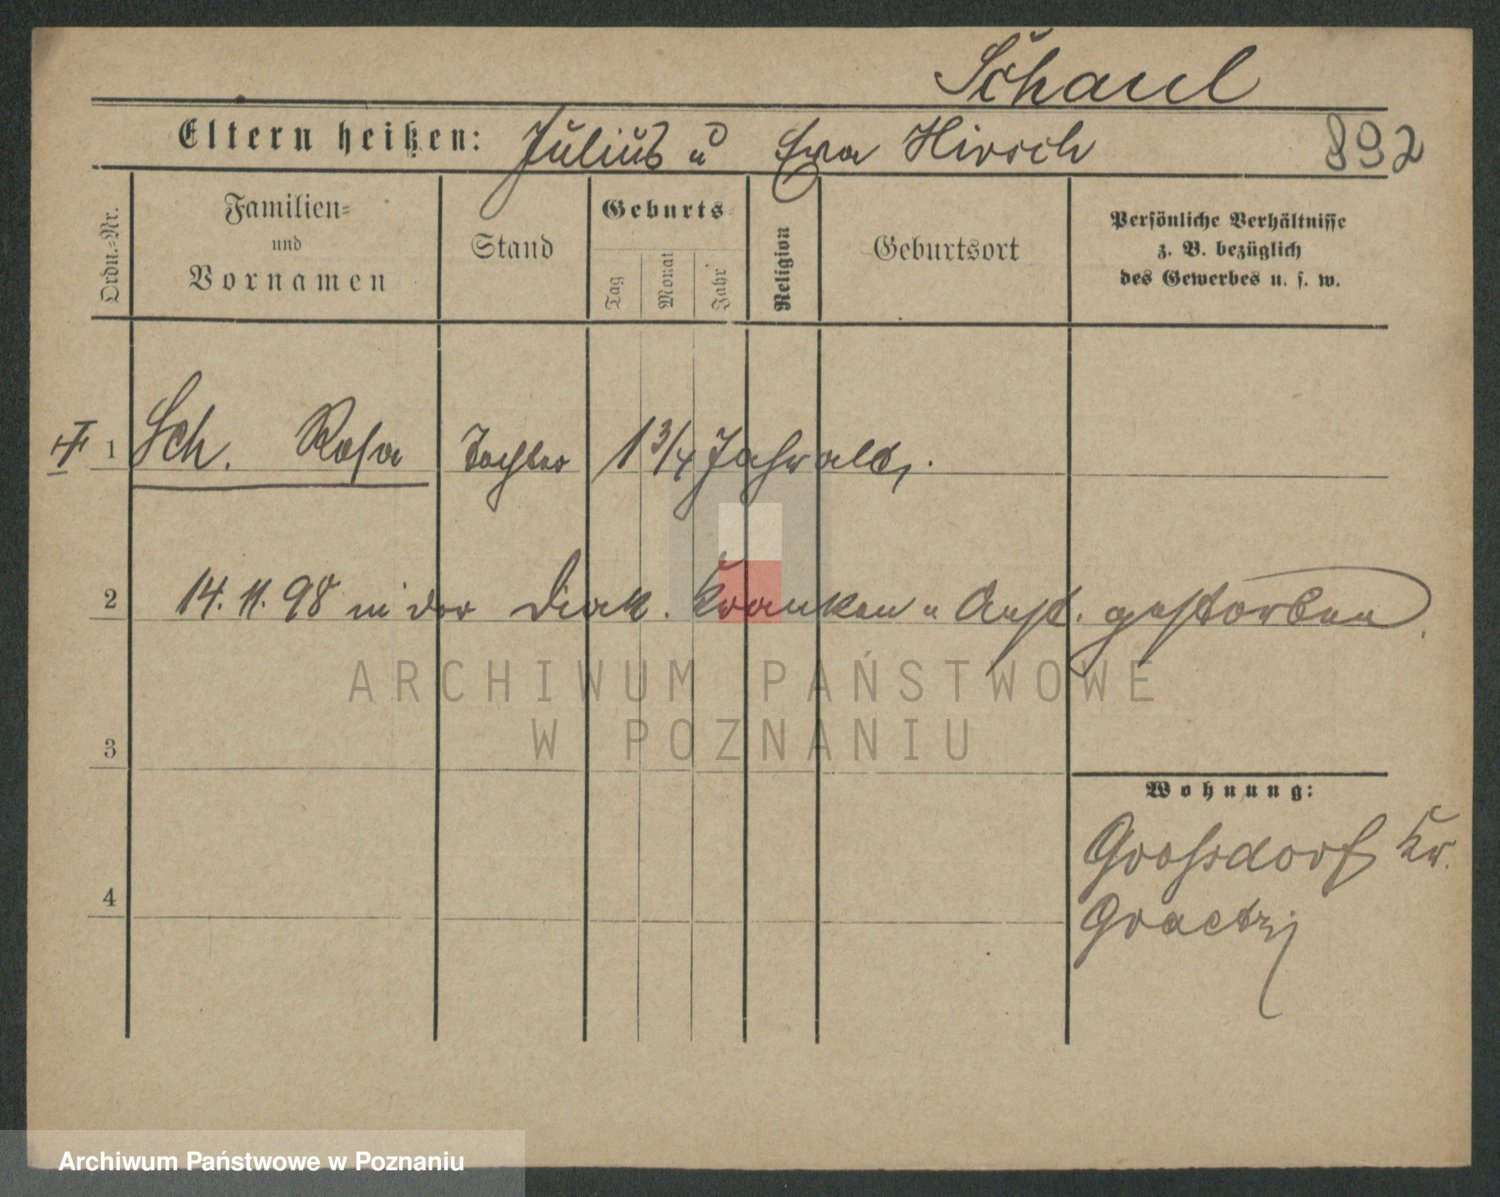 Schaul
Eltern heißen: Julius u Eva Hirsch 892
Ordn.=Nr. Familien= und Vornamen Stand Geburts= Tag Monat Jahr Religion Geburtsort Persönliche Verhältnisse z. B. bezüglich des Gewerbes u. s. w.
1 Sch. Rosa Tochter 1 3/4 Jahr alt.
2 14. 11. 98 in der Diak. Kranken u Anst. gestorben
ARCHIWUM PAŃSTWOWE
W POZNANIU
3
Wohnung:
Grossdorf Kr.
4
Graetz
Archiwum Państwowe w Poznaniu